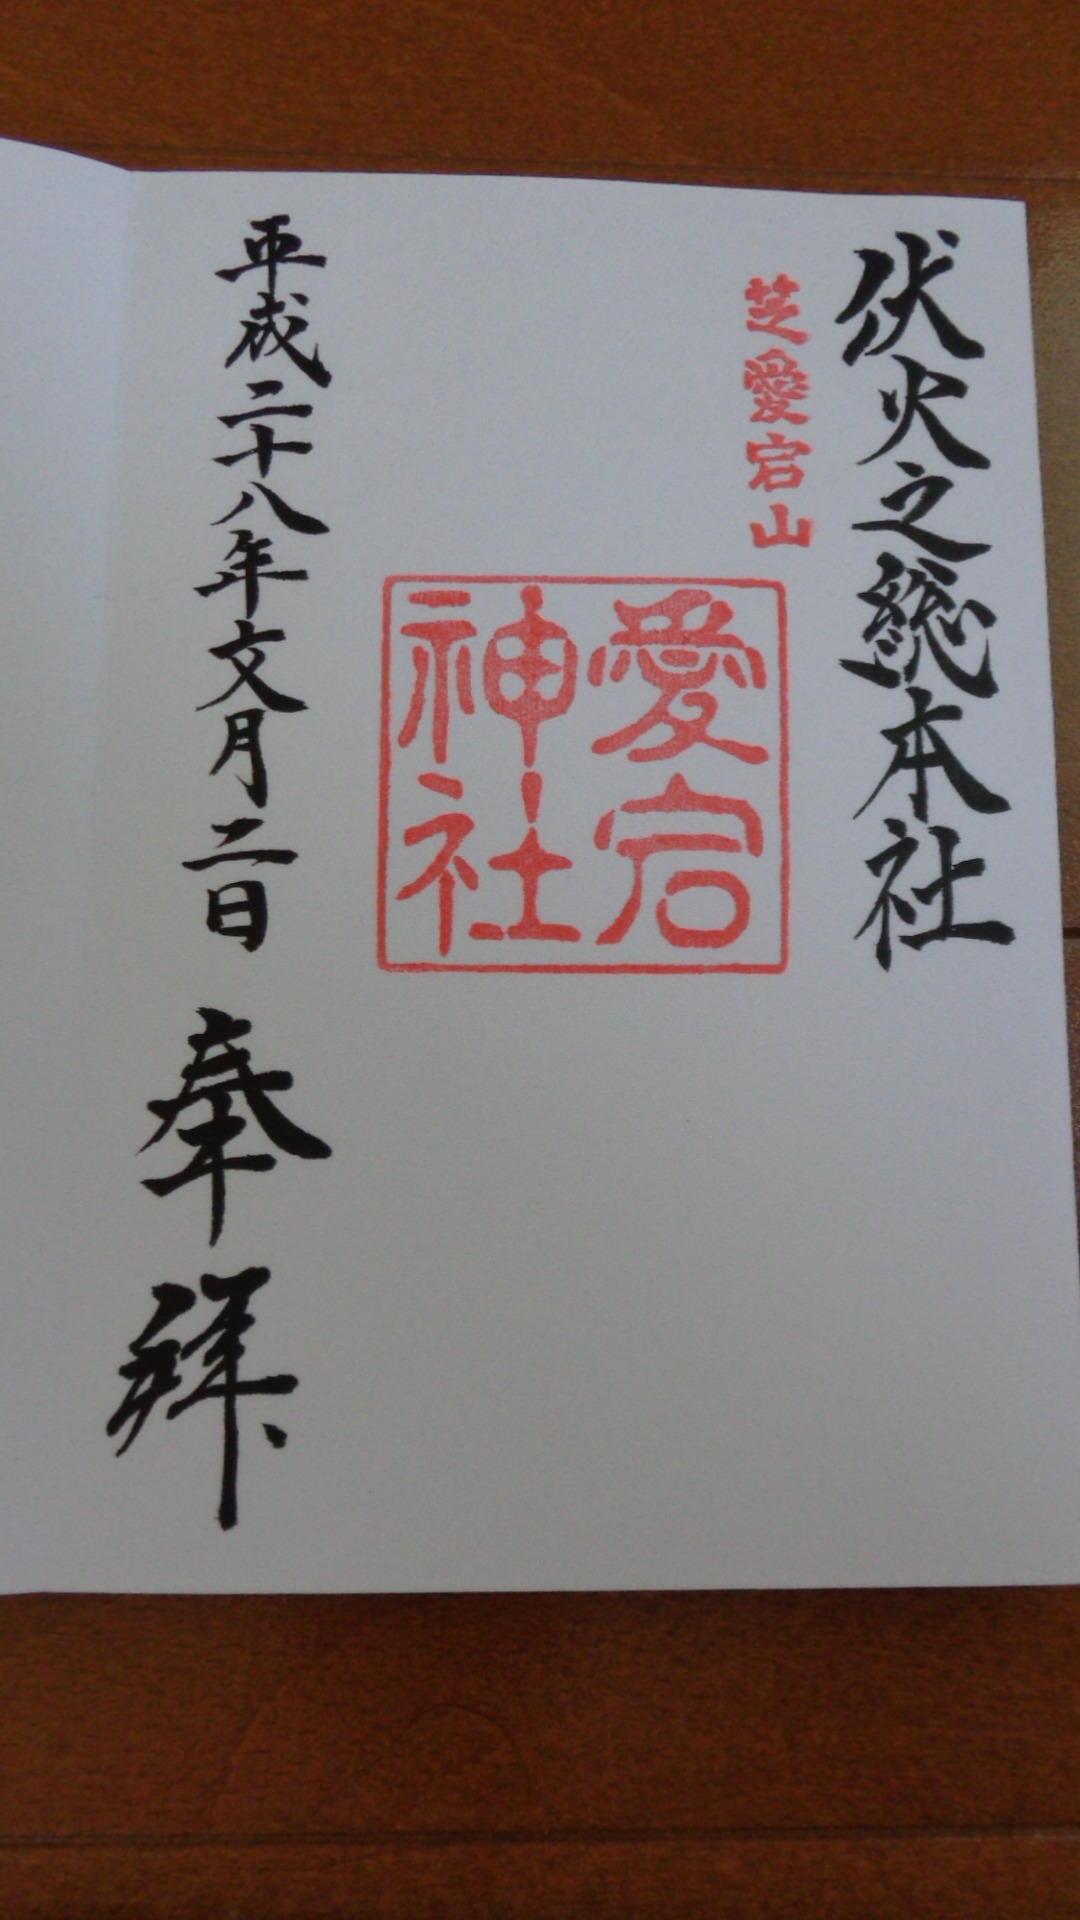 伏火之総本社
芝愛宕山
愛宕
神社
平成二十八年文月二日 奉拝